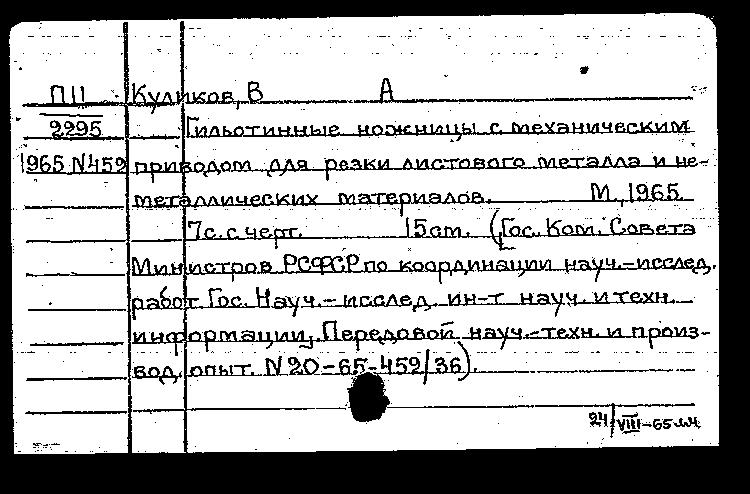 П11 Куликов, В А
2295 Гильотинные ножницы с механическим
1965 N459 приводом для резки листового металла и не-
металлических материалов. М., 1965.
7с. с черт. 15см. (Гос. Ком. Совета
Министров РСФСР по координации науч.-исслед.
работ. Гос. Науч.-исслед. ин-т науч. и техн.
информации. Передовой науч.-техн. и произ-
вод. опыт. N 20-65-459/36).
24/VIII-65